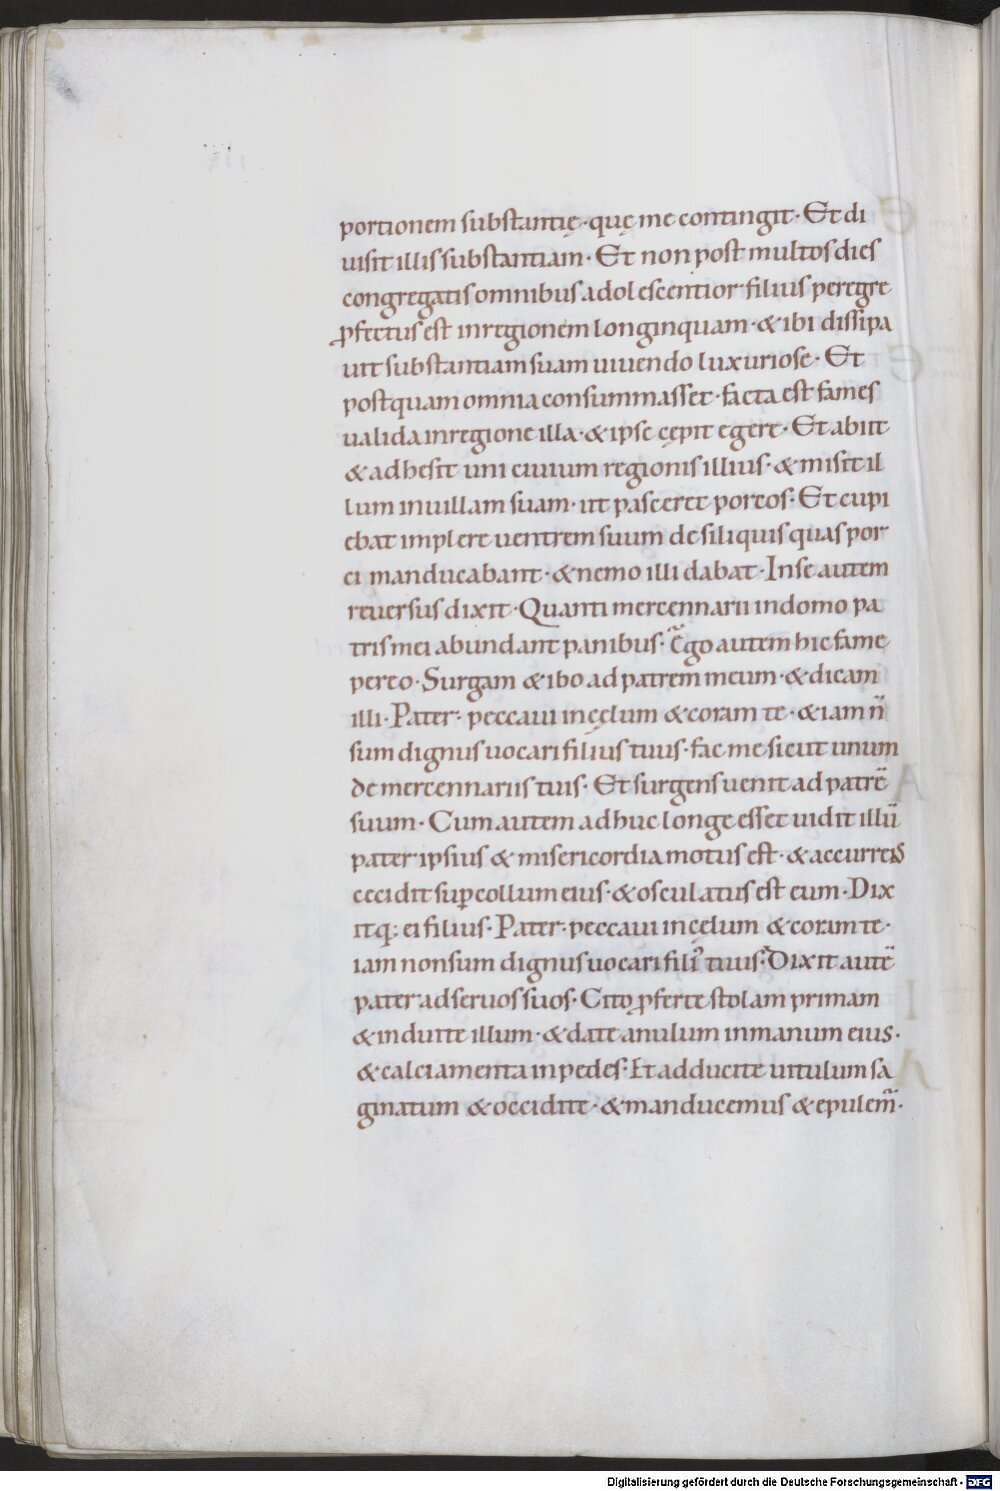 portionem substantię · quę me contingit · Et di
uisit illis substantiam · Et non post multos dies
congregatis omnibus adolescentior filius peregre
ꝓfectus est in regionem longinquam · & ibi dissipa
uit substantiam suam uiuendo luxuriose · Et
postquam omnia consummasset · facta est fames
ualida in regione illa · & ipse cępit egere · Et abiit
& adhesit uni ciuium regionis illius · & misit il
lum in uillam suam · ut pasceret porcos · Et cupi
ebat implere uentrem suum de siliquis quas por
ci manducabant · & nemo illi dabat · In se autem
reuersus dixit · Quanti mercennarii in domo pa
tris mei abundant panibus · Ego autem hic fame
pereo · Surgam & ibo ad patrem meum · & dicam
illi · Pater · peccaui in cęlum & coram te · & iam n̄
sum dignus uocari filius tuus · fac me sicut unum
de mercennariis tuis · Et surgens uenit ad patrē
suum · Cum autem adhuc longe esset uidit illū
pater ipsius & misericordia motus est · & accurrens
cecidit suꝑ collum eius · & osculatus est eum · Dix
itq; ei filius · Pater · peccaui in cęlum & coram te ·
iam non sum dignus uocari fili᾽ tuus · Dixit autē
pater ad seruos suos · Cito ꝓferte stolam primam
& induite illum · & date anulum in manum eius ·
& calciamenta in pedes · Et adducite uitulum sa
ginatum & occidite · & manducemus & epulem̄ ·
Digitalisierung gefördert durch die Deutsche Forschungsgemeinschaft - DFG